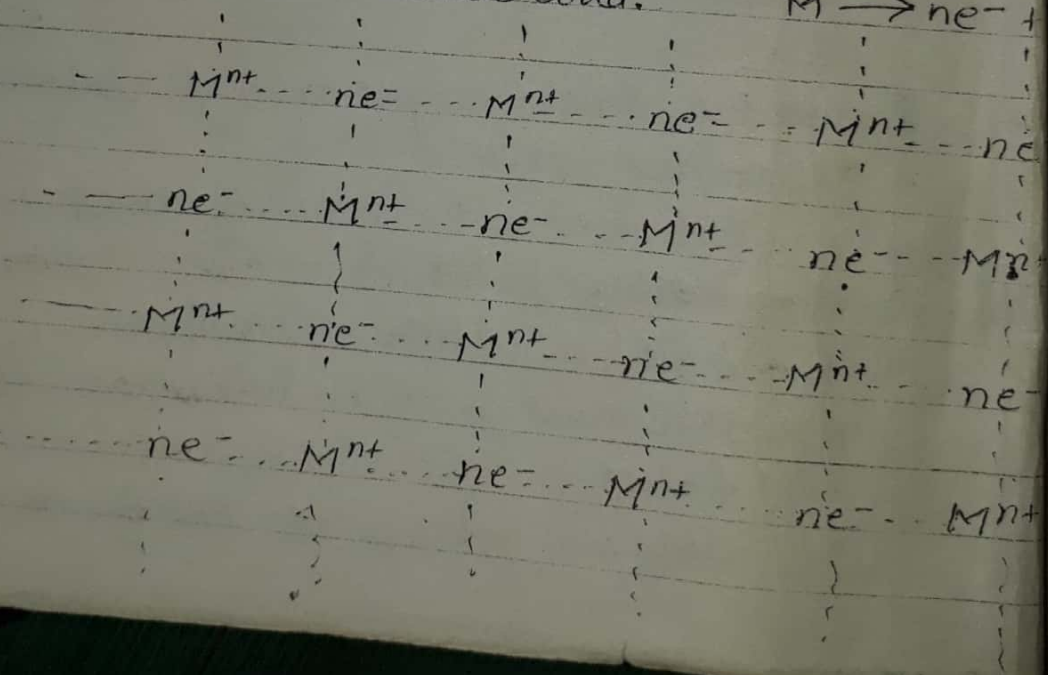 M → ne⁻ +
Mⁿ⁺ ne⁻ Mⁿ⁺ ne⁻ Mⁿ⁺ ne
ne⁻ Mⁿ⁺ ne⁻ Mⁿ⁺ ne⁻ Mⁿ
Mⁿ⁺ ne⁻ Mⁿ⁺ ne⁻ Mⁿ⁺ ne⁻
ne⁻ Mⁿ⁺ ne⁻ Mⁿ⁺ ne⁻ Mⁿ⁺